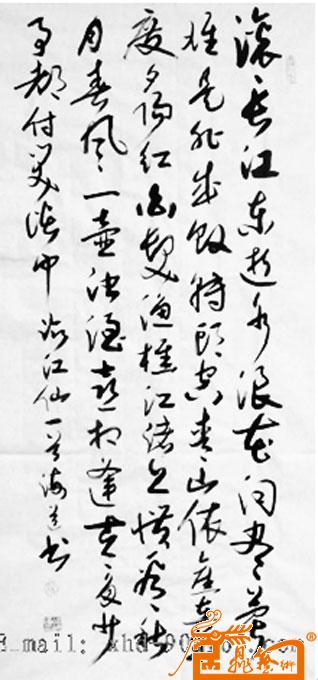 滚滚长江东逝水浪花淘尽英
雄是非成败转头空青山依旧在几
度夕阳红白发渔樵江渚上惯看秋
月春风一壶浊酒喜相逢古今多少
事都付笑谈中 临江仙一首 书
E_mail: